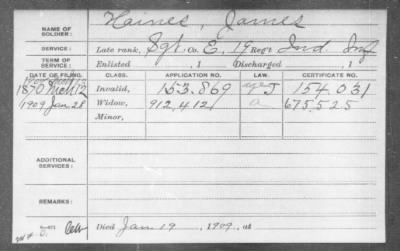 NAME OF SOLDIER: Haines, James
SERVICE: Late rank, Sgt, Co. E, 19 Reg't Ind Inf
TERM OF SERVICE: Enlisted , 1 Discharged , 1
DATE OF FILING. CLASS. APPLICATION NO. LAW. CERTIFICATE NO.
1870 12 Invalid, 153.869 154.031
1909 Jan 28 Widow, 912.412 a 675.525
Minor,
ADDITIONAL SERVICES:
REMARKS:
Died Jan 19, 1909, at